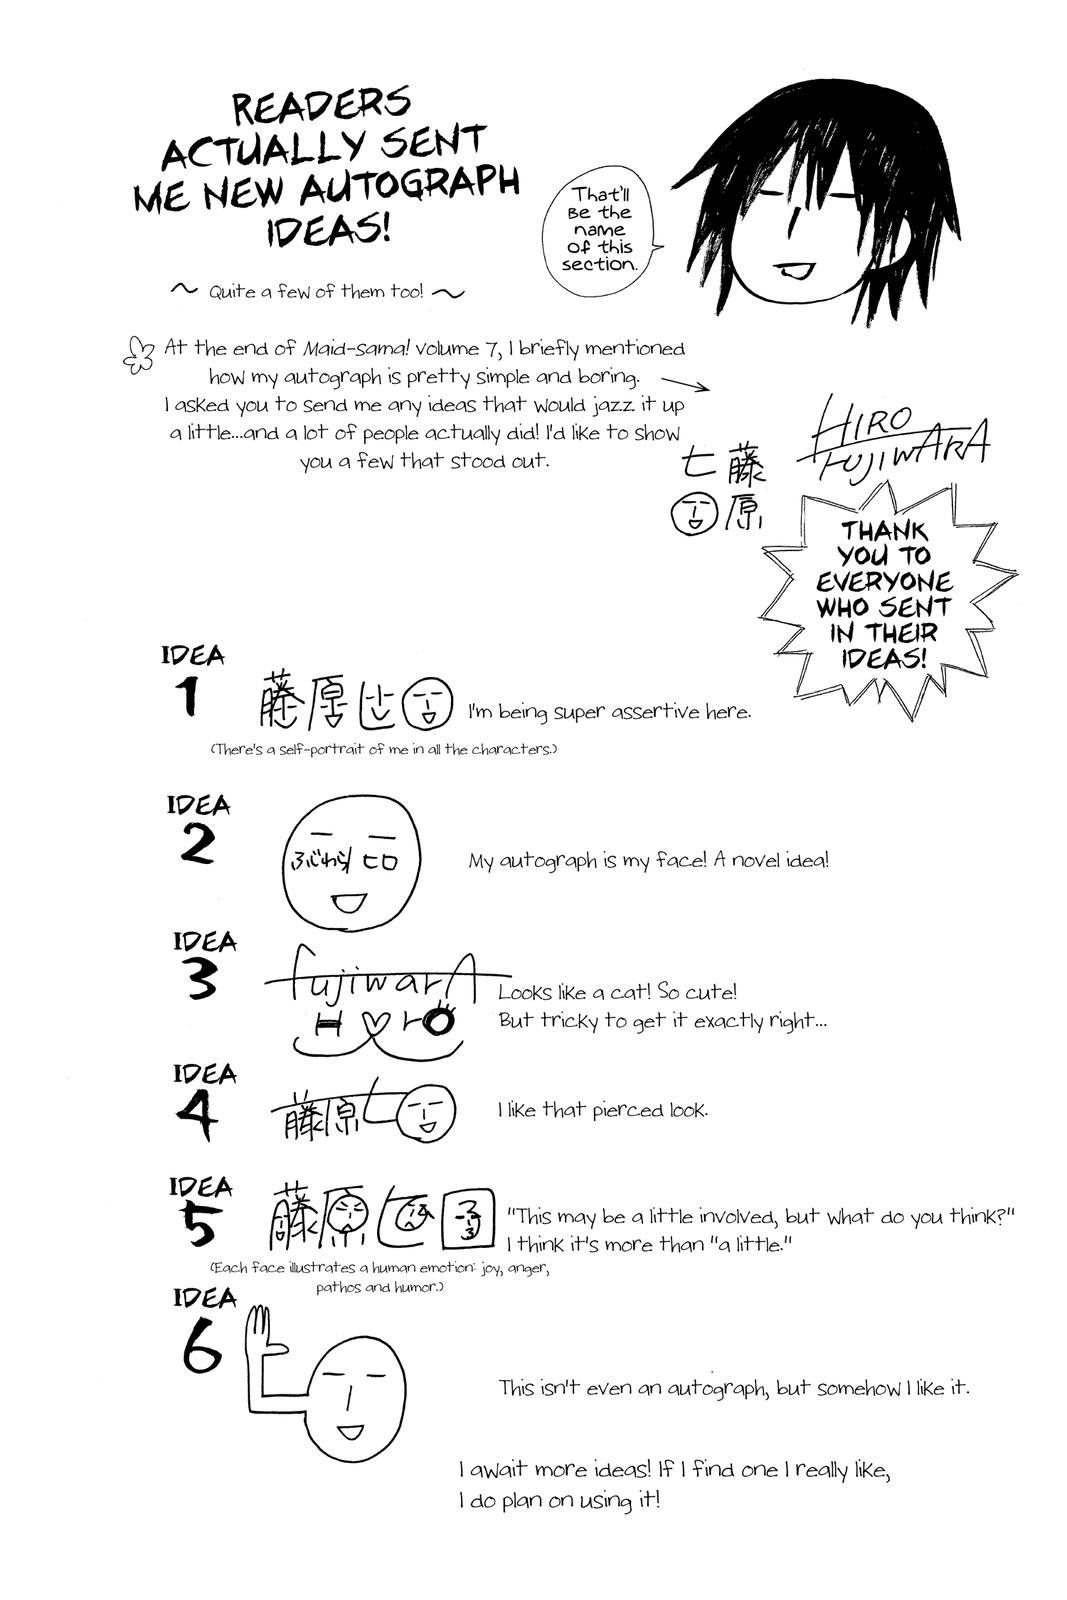 READERS
ACTUALLY SENT
ME NEW AUTOGRAPH
IDEAS!
~ Quite a few of them too! ~
That'll
Be the
name
of this
section.
At the end of Maid-sama! volume 7, I briefly mentioned
how my autograph is pretty simple and boring.
I asked you to send me any ideas that would jazz it up
a little...and a lot of people actually did! I'd like to show
you a few that stood out.
藤
原
HIRO
FUJIWARA
THANK
YOU TO
EVERYONE
WHO SENT
IN THEIR
IDEAS!
IDEA
1
藤原
I'm being super assertive here.
(There's a self-portrait of me in all the characters.)
IDEA
2
ふじわら ヒロ
My autograph is my face! A novel idea!
IDEA
3
fujiwarA
H♡rO
Looks like a cat! So cute!
But tricky to get it exactly right...
IDEA
4
藤原ヒ
I like that pierced look.
IDEA
5
藤原ヒ
"This may be a little involved, but what do you think?"
I think it's more than "a little."
(Each face illustrates a human emotion: joy, anger,
pathos and humor.)
IDEA
6
This isn't even an autograph, but somehow I like it.
I await more ideas! If I find one I really like,
I do plan on using it!